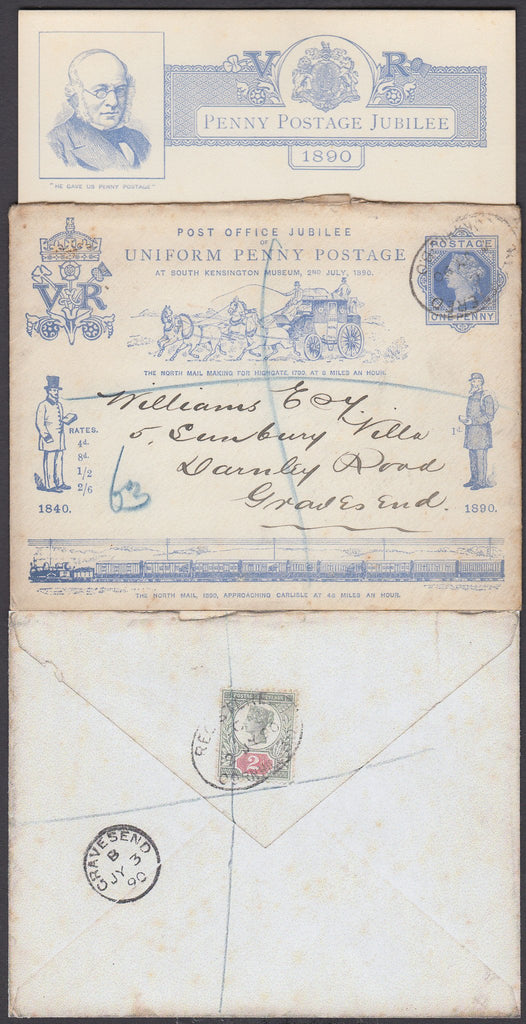 V R
PENNY POSTAGE JUBILEE
1890
"HE GAVE US PENNY POSTAGE"
POST OFFICE JUBILEE
OF
UNIFORM PENNY POSTAGE
AT SOUTH KENSINGTON MUSEUM, 2ND JULY, 1890.
POSTAGE
ONE PENNY
V R
THE NORTH MAIL MAKING FOR HIGHGATE, 1790, AT 8 MILES AN HOUR.
Williams Esq.
5, Sunbury Villa
Darnley Road
Gravesend.
RATES.
4d.
8d.
1/2
2/6
1d.
63
1840.
1890.
THE NORTH MAIL, 1890, APPROACHING CARLISLE AT 48 MILES AN HOUR.
2
GRAVESEND
B
JY 3
90